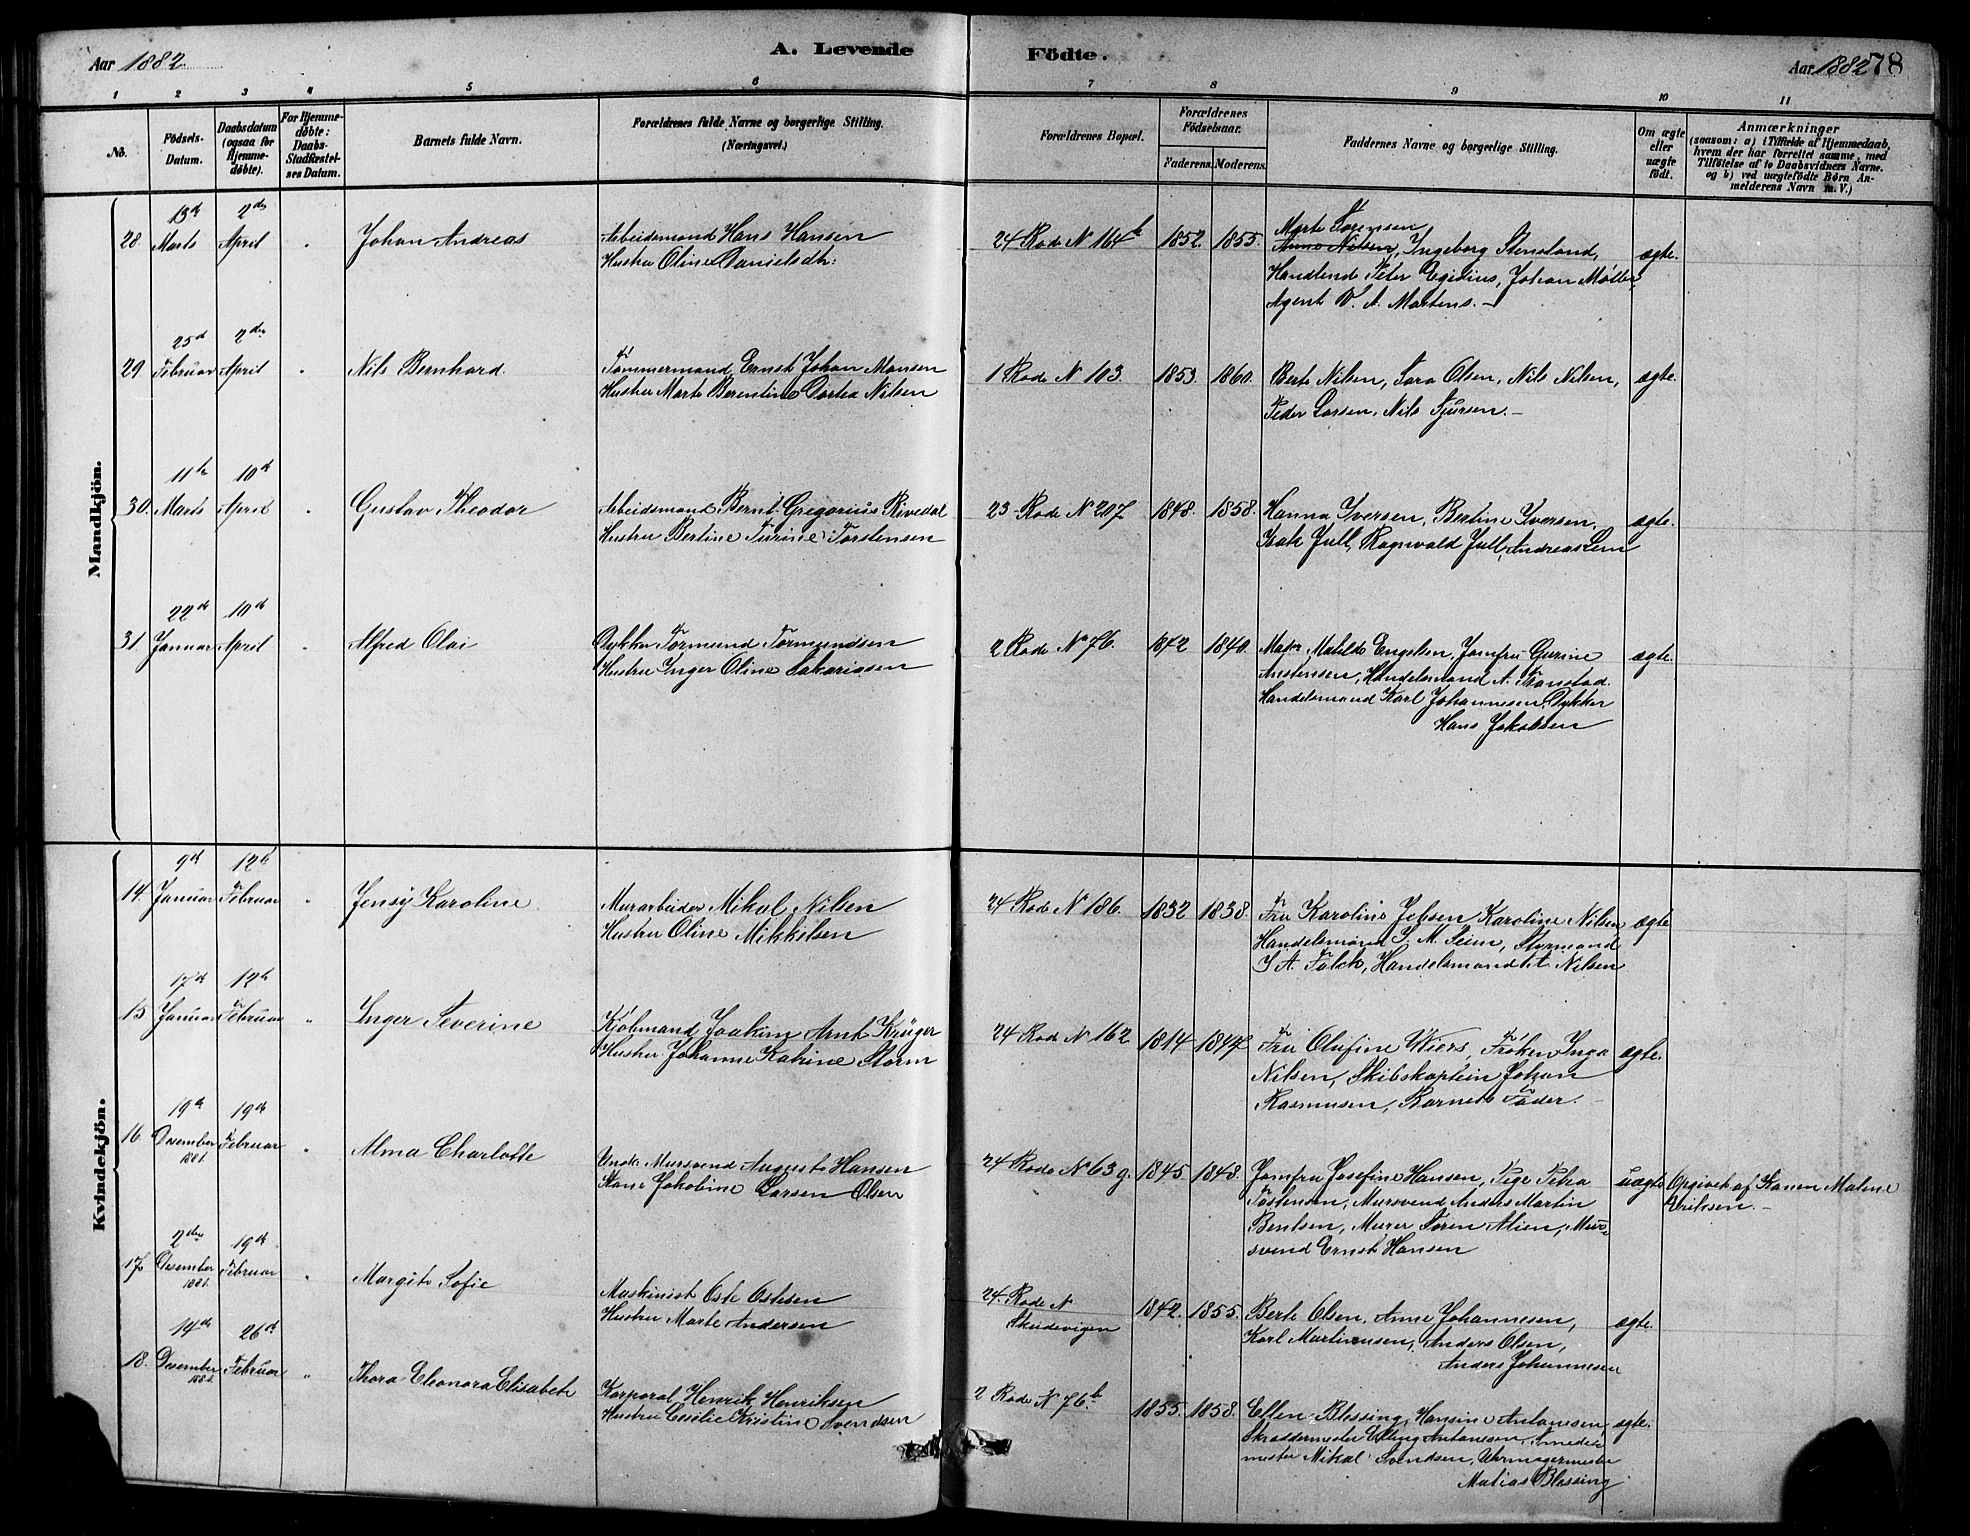 Aar 1882.
A. Levende Födte.
Aar 1882 78
1 2 3 4 5 6 7 8 9 10 11
No. Födsels-Datum. Daabsdatum (ogsaa for Hjemmedöbte). For Hjemmedöbte: Daabs-Stadfæstelses Datum. Barnets fulde Navn. Forældrenes fulde Navne og borgerlige Stilling. (Næringsvei.) Forældrenes Bopæl. Forældrenes Födselsaar. Faderens. Moderens. Faddernes Navne og borgerlige Stilling. Om ægte eller uægte födt. Anmærkninger (saasom: a) i Tilfælde af Hjemmedaab, hvem der har forrettet samme, med Tilföielse af to Daabsvidners Navne. og b) ved uægtefödte Börn Anmelderens Navn m. V.)
Mandkjön.
28 13de Marts 2den April " Johan Andreas
Arbeidsmand Hans Hansen
Hustru Oline Danielsdtr:
24 Rode N 164b 1852. 1855.
Marte Sørensen
Anna Nilsen, Ingeborg Stensland,
Handlende Peter Egidius, Johan Møller,
Agent W. A. Martens. –
ægte.
29. 25d Februar 2den April " Nils Bernhard.
Tømmermand Ernst Johan Monsen
Hustru Marte Berentine Dortea Nilsen
1 Rode N 103. 1853. 1860.
Berte Nilsen, Sara Olsen, Nils Nilsen,
Peder Larsen, Nils Sjursen. –
ægte.
30. 11te Marts 10de April " Gustav Theodor
Arbeidsmand Bernt Gregorius Rivedal
Hustru Bertine Turine Torstensen
23 Rode N 207 1848. 1858.
Hanna Iversen, Bertine Iversen,
Isak Jull, Ragnvald Jull, Andreas Lem
ægte.
31. 22de Januar 10de April " Alfred Olai
Dykker Tormund Tormundsen
Hustru Inger Oline Sakariasen
2 Rode No 76. 1842 1840.
Matilde Engelsen, Jomfru Gurine
Anstensen, Handelsmand A. Transtad.
Handelsmand Karl Johannesen, Dykker
Hans Jakobsen
ægte.
Kvindekjön.
14. 9de Januar 12te Februar " Jensy Karoline.
Murarbeider Mikal Nilsen
Hustru Oline Mikkelsen
24 Rode N 186. 1832 1838.
Fru Karoline Jebsen, Karoline Nilsen
Handelsmand J. M. Seim, Styrmand
J A. Falck, Handelsmand A Nilsen
ægte
15 17de Januar 12te Februar " Inger Severine
Kjøbmand Joakim Arnt Krüger
Hustru Johanne Katrine Storm
24 Rode N 162 1814 1847
Fru Olufine Wiers, Frøken Inga
Nilsen, Skibskaptein Johan
Rasmusen, Barnets Fader. –
ægte.
16. 19de Desember 1881. 19de Februar " Alma Charlotte
Ungk. Mursvend August Hansen
Kone Jakobine Larsen Olsen
24 Rode N 63 g. 1845. 1848.
Jomfru Josefine Hansen, Pige Petra
Tostensen, Mursvend Anders Martin
Bentsen, Murer Søren Alien, Mur-
svend Ernst Hansen
uægte
Opgivet af Konen Maline
Eriksen. –
17. 2den Desember 1881. 19de Februar " Margite Sofie
Maskinist Oste Ostesen
Hustru Marte Andersen
24. Rode N
Skudevigen 1842. 1855.
Berte Olsen, Anne Johannesen,
Karl Martinusen, Anders Olsen,
Anders Johannesen
ægte.
18. 14de Desember 1881. 26de Februar " Thora Eleonora Elisabeth
Korporal Henrik Henriksen
Hustru Cecilie Kristine Svendsen
2 Rode N 76b 1855. 1858.
Ellen Blessing, Hansine Antonisen,
Skræddermester Elling Antonisen, Smede-
mester Mikal Svendsen, Uhrmagermester
Matias Blessing
ægte.